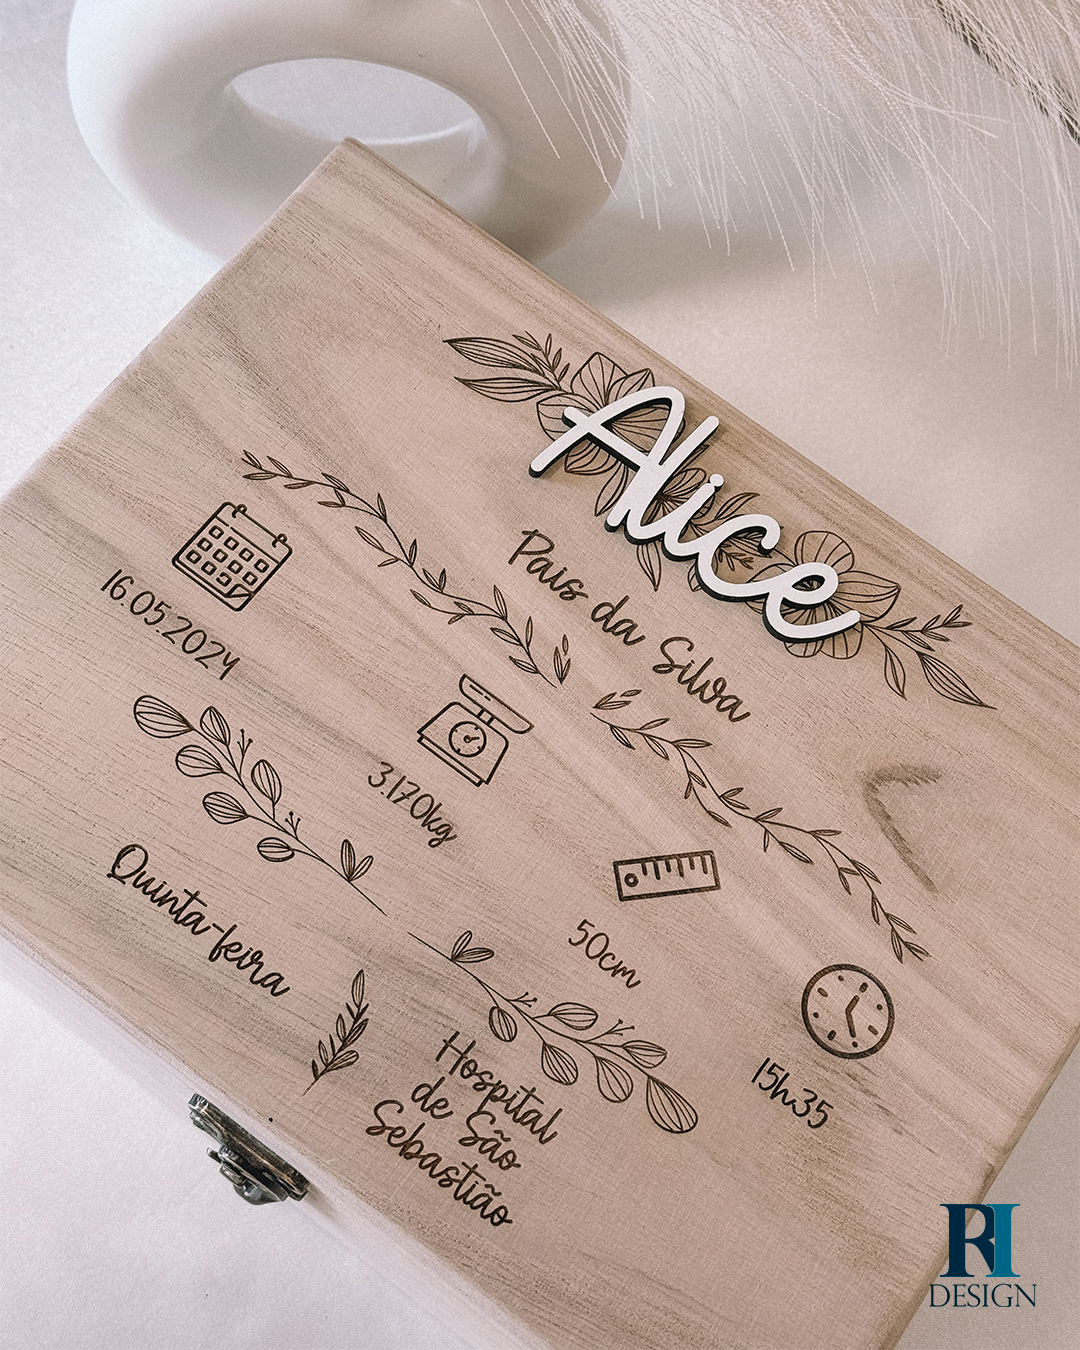 Alice
Pais da Silva
16.05.2024
3.170kg
50cm
15h35
Quinta-feira
Hospital
de São
Sebastião
RI
DESIGN